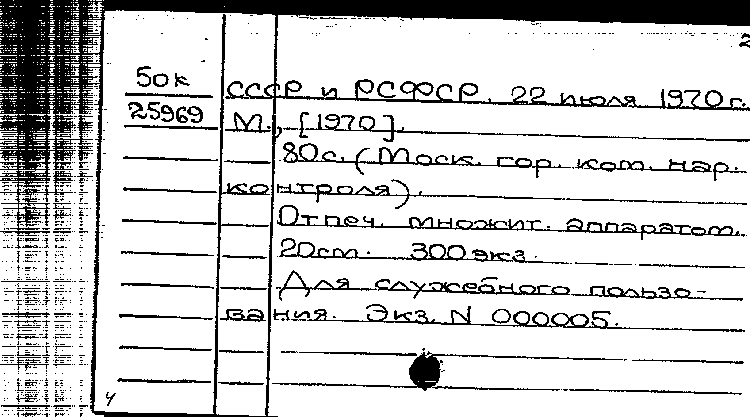 2
50к СССР и РСФСР. 22 июля 1970г.
25969 М., [1970].
80с. (Моск. гор. ком. нар.
контроля).
Отпеч. множит. аппаратом.
20см. 300 экз.
Для служебного пользо-
вания. Экз. N 000005.
4